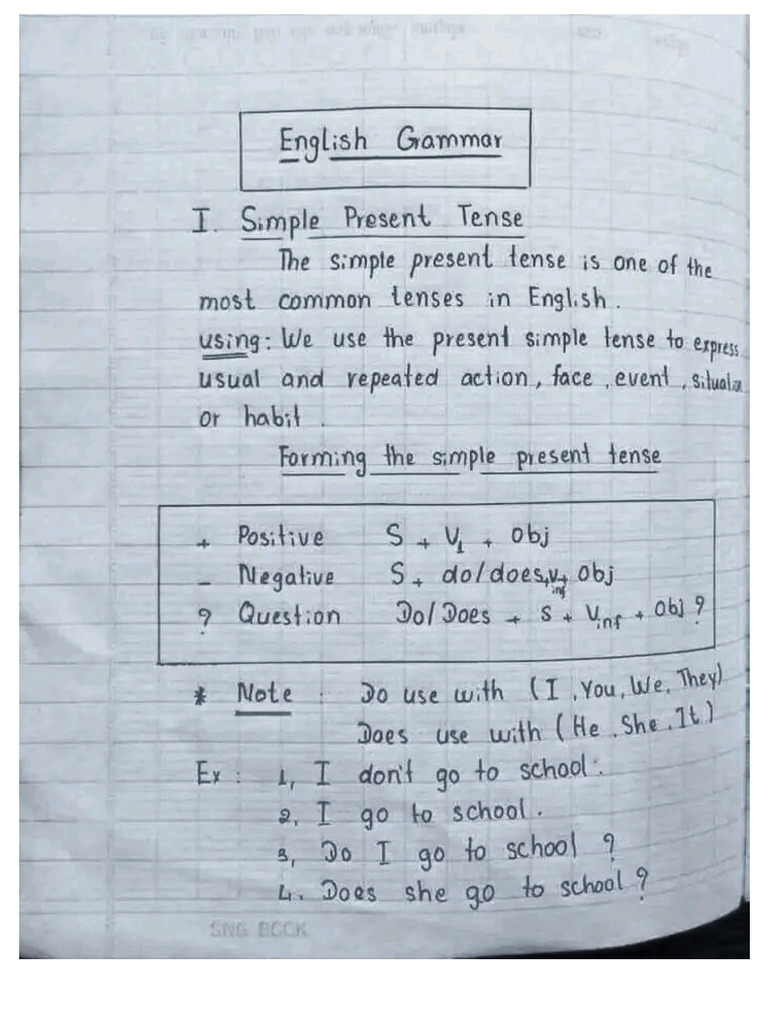 English Grammar
I. Simple Present Tense
The simple present tense is one of the
most common tenses in English.
using: We use the present simple tense to express
usual and repeated action, face, event, situation
or habit.
Forming the simple present tense
+ Positive S + V1 + obj
- Negative S + do/does + Vinf + obj
? Question Do/Does + S + Vinf + obj ?
* Note : Do use with (I, You, We, They)
Does use with (He, She, It)
Ex : 1, I don't go to school.
2, I go to school.
3, Do I go to school ?
4. Does she go to school ?
SNG BOOK